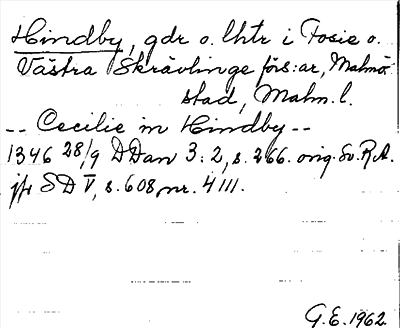 Hindby, gdr o. lhtr i Fosie o.
Västra Skrävlinge förs:ar, Malmö
stad, Malm. l.
-- Cecilie in Hindby --
1346 28/9 DDan 3:2, s. 266. orig. Sv. R.A.
jfr SD V, s. 608, nr. 4111.
G.E. 1962.